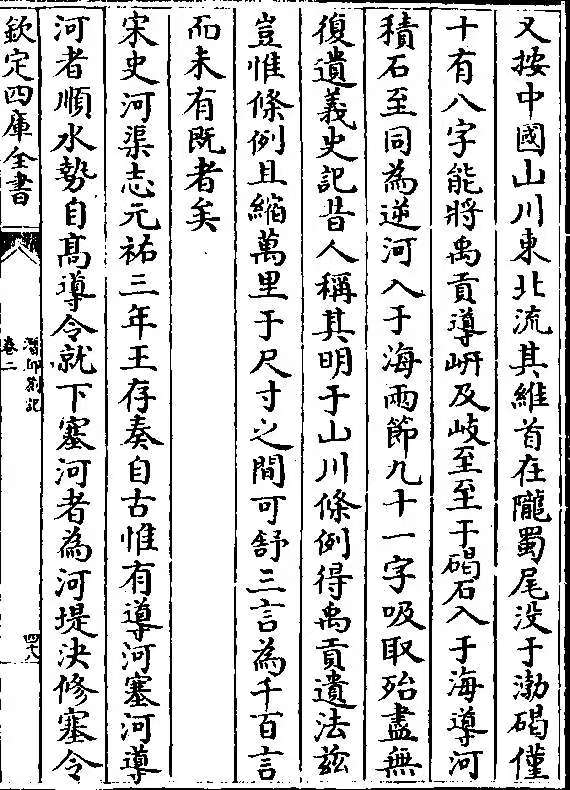 又按中國山川東北流其維首在隴蜀尾没于渤碣僅
十有八字能將禹貢導岍及岐至至于碣石入于海導河
積石至同為逆河入于海兩節九十一字吸取殆盡無
復遺義史記昔人稱其明于山川條例得禹貢遺法兹
豈惟條例且縮萬里于尺寸之間可舒三言為千百言
而未有既者矣
宋史河渠志元祐三年王存奏自古惟有導河塞河導
河者順水勢自髙導令就下塞河者為河堤決修塞令
欽定四庫全書
潛邱劄記
卷二
四十八